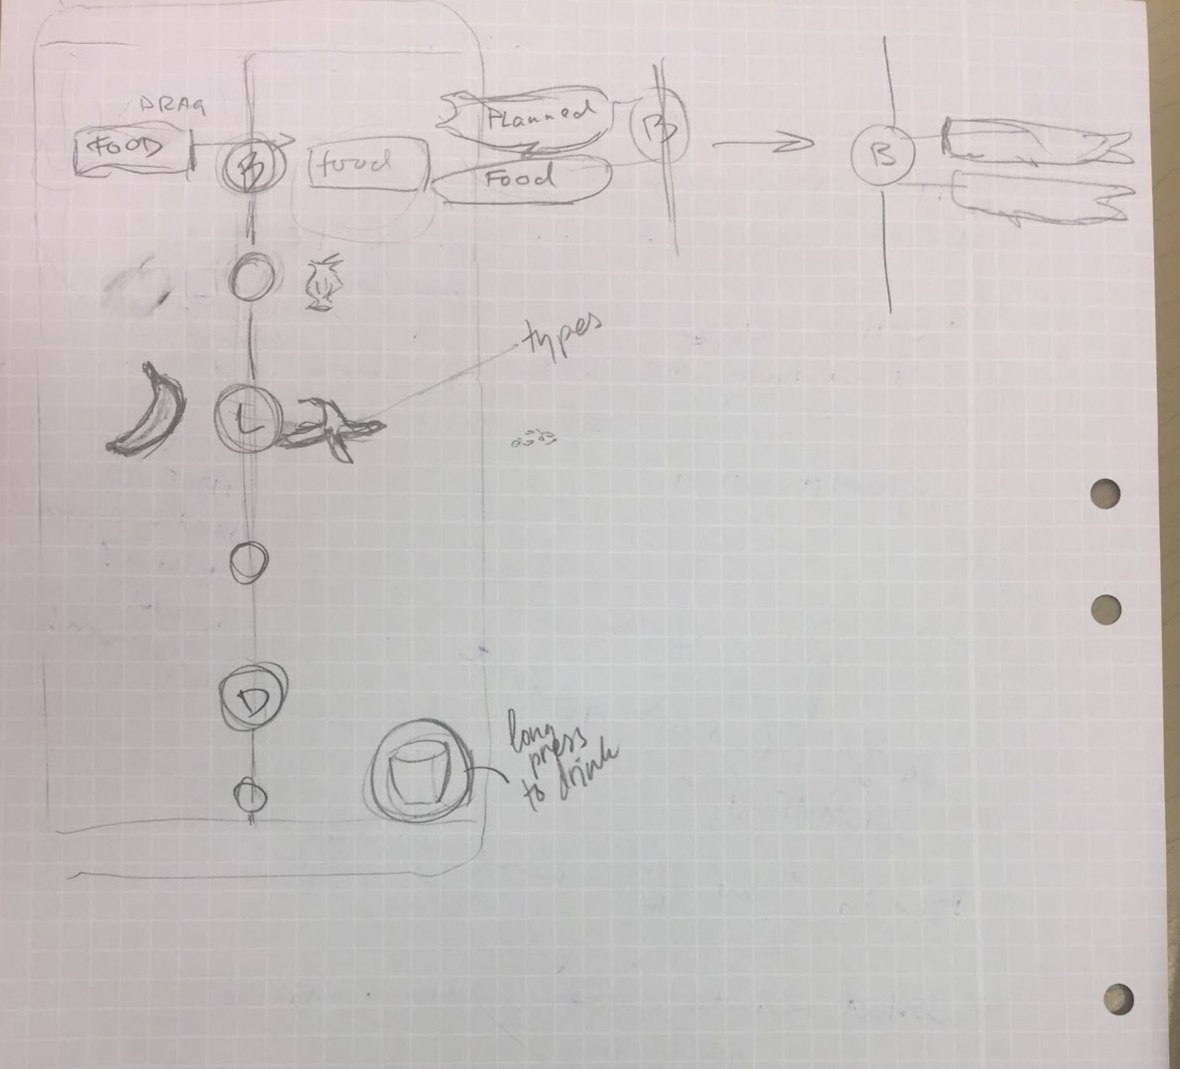 DRAG
FOOD
B
food
Planned
Food
B
B
types
L
D
long
press
to drink